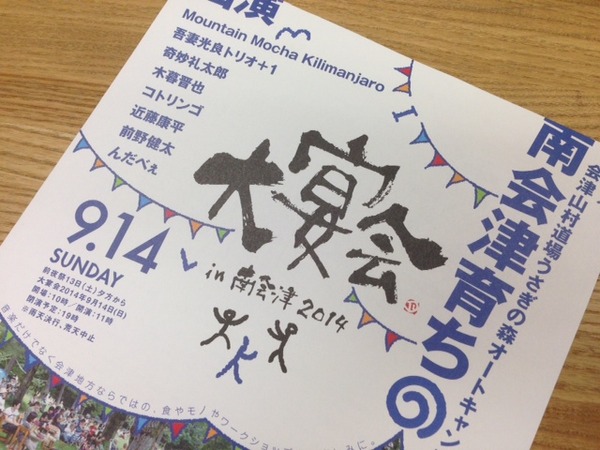 出演
Mountain Mocha Kilimanjaro
吾妻光良トリオ+1
奇妙礼太郎
木暮晋也
コトリンゴ
近藤康平
前野健太
んだべぇ
大宴会
in 南会津 2014
9.14
SUNDAY
前夜祭13日(土)夕方から
大宴会2014年9月14日(日)
開場:10時/開演:11時
閉演予定:19時
※雨天決行、荒天中止
南会津育ちの
会津山村道場うさぎの森オートキャン
音楽だけでなく会津地方ならではの、食やモノやワークショップ